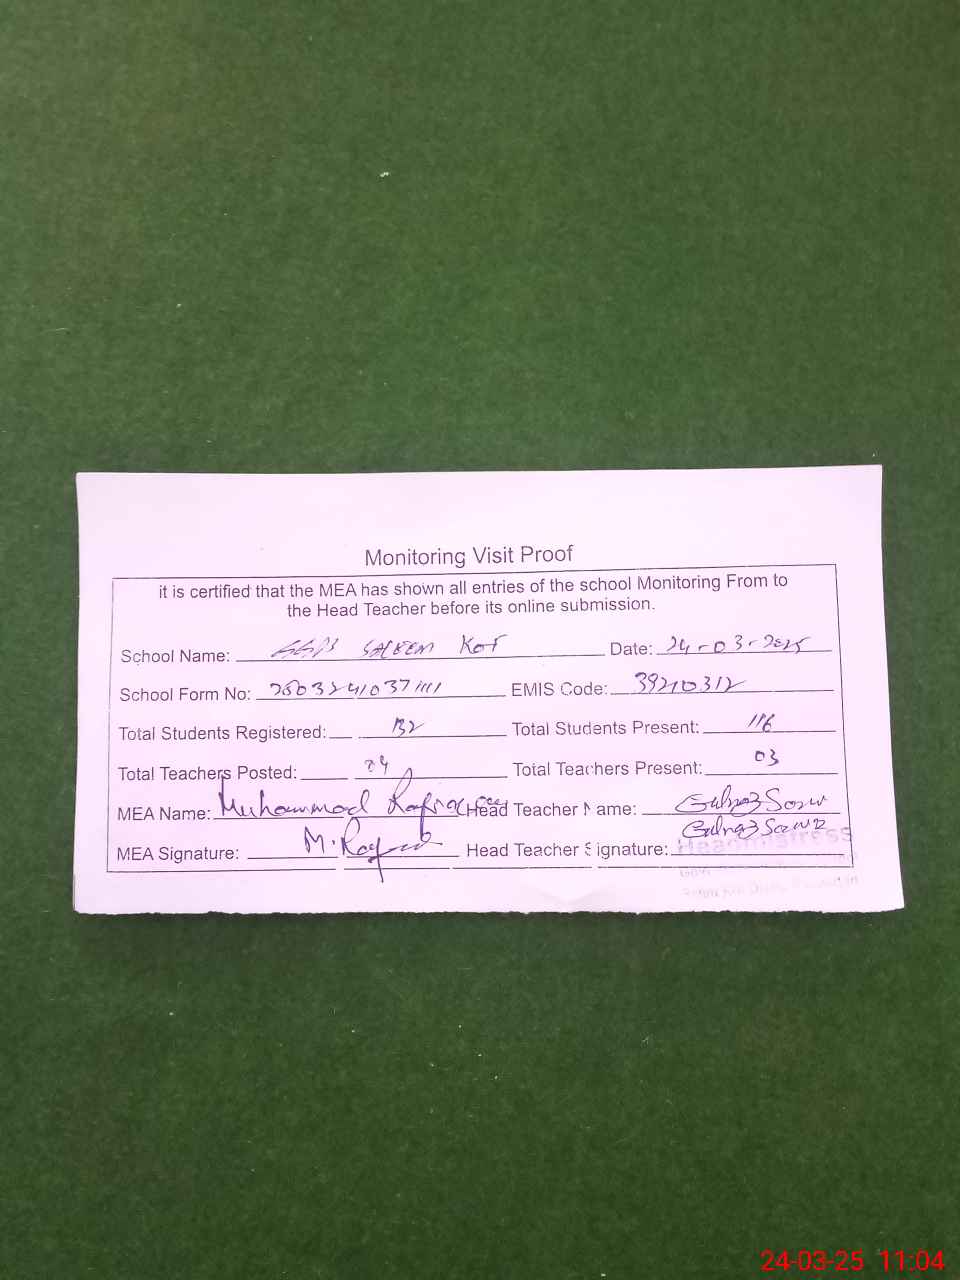 Monitoring Visit Proof
it is certified that the MEA has shown all entries of the school Monitoring From to
the Head Teacher before its online submission.
School Name: GGPS SALEEM KOT Date: 24-03-2025
School Form No: EMIS Code: 39210312
Total Students Registered: 132 Total Students Present: 116
Total Teachers Posted: 04 Total Teachers Present: 03
MEA Name: Muhammad Head Teacher Name: Gulnaz
MEA Signature: M. Head Teacher Signature: Gulnaz
Headmistress
24-03-25 11:04